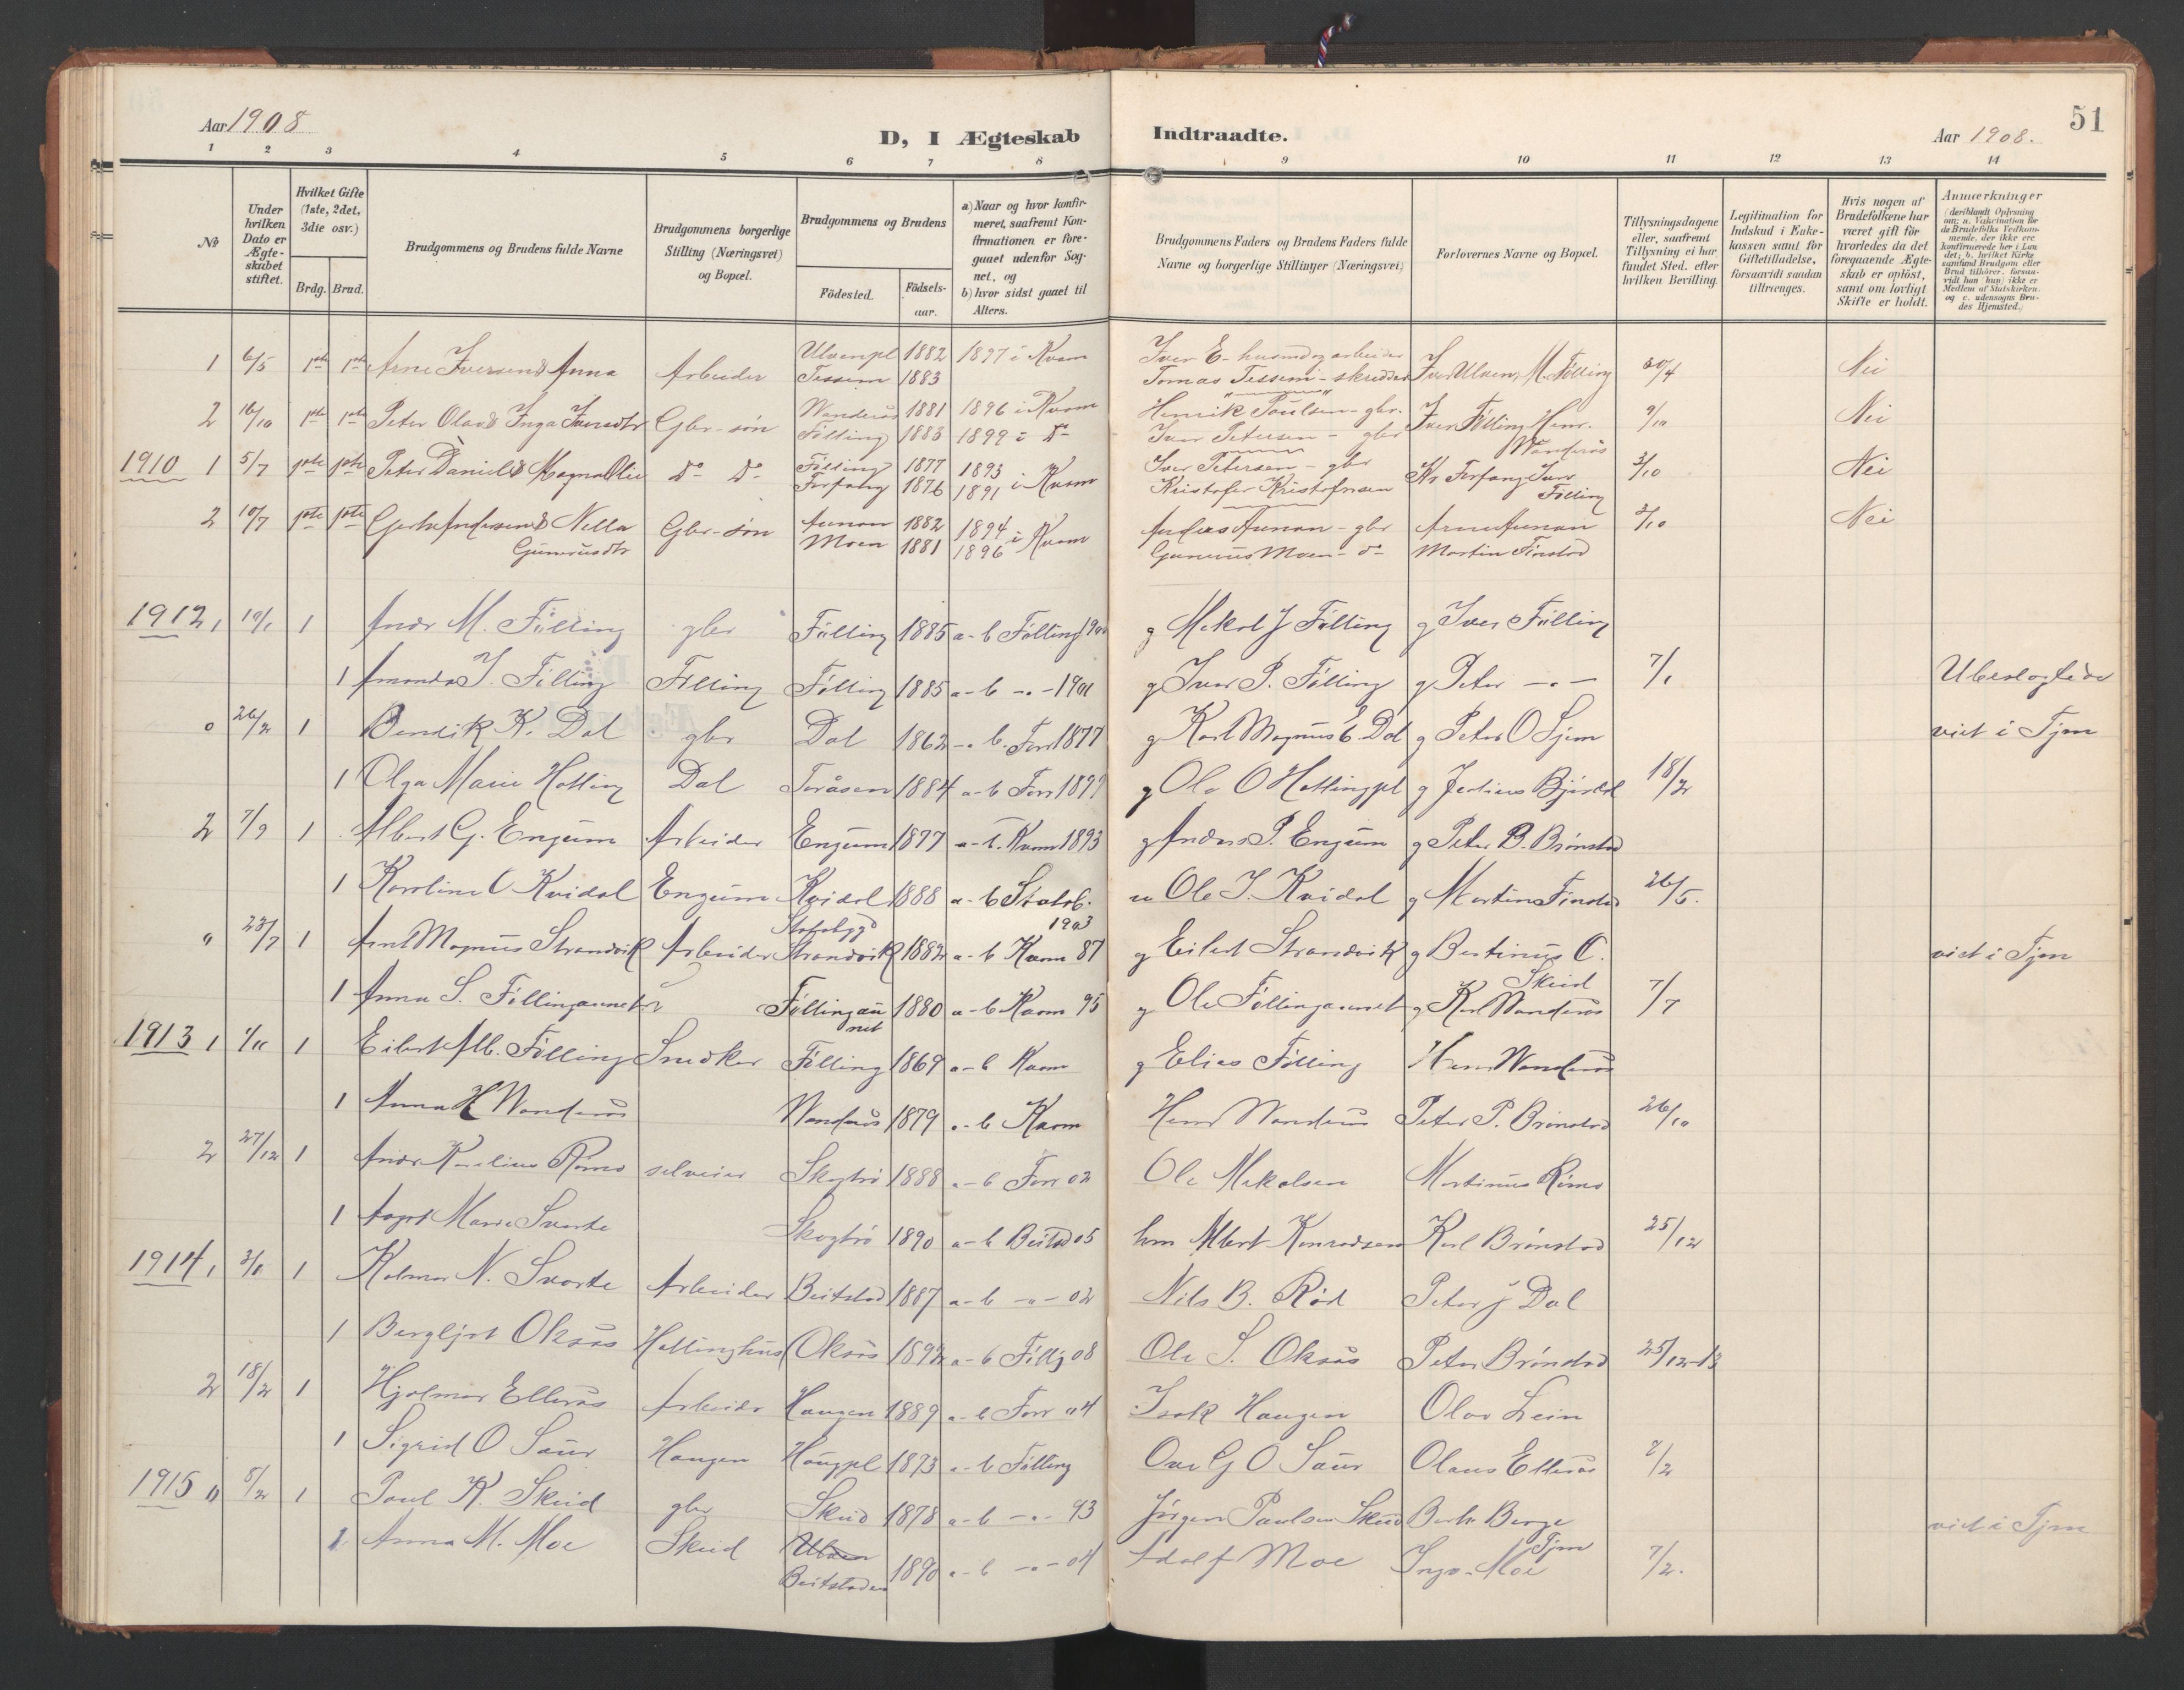 51
Aar 1908
D, I Ægteskab Indtraadte.
Aar 1908.
1 2 3 4 5 6 7 8 9 10 11 12 13 14
No
Under hvilken Dato er Ægte-skabet stiftet.
Hvilket Gifte (1ste, 2det, 3die osv.)
Brdg. Brud.
Brudgommens og Brudens fulde Navne
Brudgommens borgerlige Stilling (Næringsvei) og Bopæl.
Brudgommens og Brudens
Födested.
Födsels-aar.
a) Naar og hvor konfir-meret, saafremt Kon-firmationen er fore-gaaet udenfor Sog-net, og
b) hvor sidst gaaet til Alters.
Brudgommens Faders og Brudens Faders fulde Navne og borgerlige Stillinger (Næringsvei)
Forlovernes Navne og Bopæl.
Tillysningsdagene eller, saafremt Tillysning ei har fundet Sted, efter hvilken Bevilling.
Legitimation for Indskud i Enke-kassen samt for Giftetilladelse, forsaavidt saadan tiltrænges.
Hvis nogen af Brudefolkene har været gift för hvorledes da det foregaaende Ægte-skab er oplöst, samt om lovligt Skifte er holdt.
Anmærkninger (deriblandt Oplysning om: a. Vakcination for de Brudefolks Vedkom-mende, der ikke ere konfirmerede her i Lan det; b. hvilket Kirke samfund Brudgom eller Brud tilhörer, forsaa-vidt han (hun) ikke er Medlem af Statskirken. og c. udensogns Bru-des Hjemsted.)
1 6/5 1ste 1ste Arne Iversen & Anna Arbeider Ulvenpl 1882 1897 i Kvam Iver E- husmd og arbeider Iver Ulven, M. Følling 20/4 Nei
Tessem 1883 Tomas Tessem - skredder
2 16/10 1ste 1ste Peter Olav & Inga Iversdtr Gbr-søn Wanderås 1881 1896 i Kvam Henrik Paulsen - gbr. Iver Følling Henr. 9/10 Nei
Følling 1883 1899 i do Iver Petersen - gbr Wanderås
1910 1 5/7 1ste 1ste Peter Daniel & Magna Olise do do Følling 1877 1893 Iver Petersen - gbr Kr Forfang Iver 3/10 Nei
Forfang 1876 1891 i Kvam Kristofer Kristofersen Følling
2 10/7 1ste 1ste Gerh Andersen & Nella Gbr-søn Aunan 1882 1894 i Kvam Anders Aunan - gbr Arne Aunan 3/10 Nei
Gunerusdtr Moen 1881 1896 Gunerius Moen - do Martin Finstad
1912 1 19/1 1 Andr M. Følling gbr Følling 1885 a-b Følling 1900 g Mekal J Følling g Iver Følling
1 Amanda I. Følling Følling Følling 1885 a-b -"- 1901 g Iver P. Følling g Peter -"- 7/1 Ubeslægtede
0 26/2 1 Bendik K. Dal gbr Dal 1862 -. b. Forr 1877 g Karl Magnus E. Dal g Peter O Sjem viet i Tjem
1 Olga Marie Hatling Dal Toråsen 1884 a-b Forr 1899 g Ole O Hatlingpl g 18/2
2 7/9 1 Albert G. Engum Arbeider Engum 1877 a-b. Kvam 1893 g Anders P. Engum g Peter B. Brønstad
1 Karoline O Kvidal Engum Kvidal 1888 a-b Statsb. Ole I. Kvidal g Martin Finstad 26/5.
Statsbygd 1903
" 23/7 1 Arnt Magnus Strandvik Arbeider Strandvik 1882 a-b Kvam 87 g Eilert Strandvik g Bertinus O. viet i Tjem
Skeid
1 Anna S. Føllingaunet Føllingau 1880 a-b Kvam 95 g Ole Føllingaunet g Karl Wanderås 7/7
net
1913 1 1/11 1 Eilert Alb. Følling Snedker Følling 1869 a-b Kvam g Elias Følling Henr Wanderås
1 Anna H Wanderås Wanderås 1879 a-b Kvam Henr Wanderås Peter P. Brønstad 26/10
2 27/12 1 Andr Karelius Rømo selveier Skogtrø 1888 a-b Forr 02 Ole Mekalsen Martinus Rømo
1 Aagot Marie Svarte Skogtrø 1890 a-b Beitstad 05 hm Albert Konradsen Karl Brønstad 25/12
1914 1 3/1 1 Kalmar N. Svarte Arbeider Beitstad 1887 a-b -"- 02 Nils B. Rød Peter J Dal
1 Bergljot Oksås Hatlinghus Oksås 1892 a-b Føllg 08 Ole S. Oksås Peter Brønstad 25/12-13
2 18/2 1 Hjalmar Elleras Arbeider Haugen 1889 a-b Forr 04 Isak Haugen Olav Lein
1 Sigrid O Saur Haugen Haugpl 1873 a-b Følling Ove G O Saur Olaus Elleras 8/2
1915 " 5/2 1 Paul K. Skeid gbr Skeid 1878 a-b -"- 93 Jørgen Paulsen Skeid Berh Berge viet i Tjem
Tjem
1 Anna M. Moe Skeid Ulven 1890 a-b -"- 04 Adolf Moe Ingv. Moe 7/2.
Beitstaden